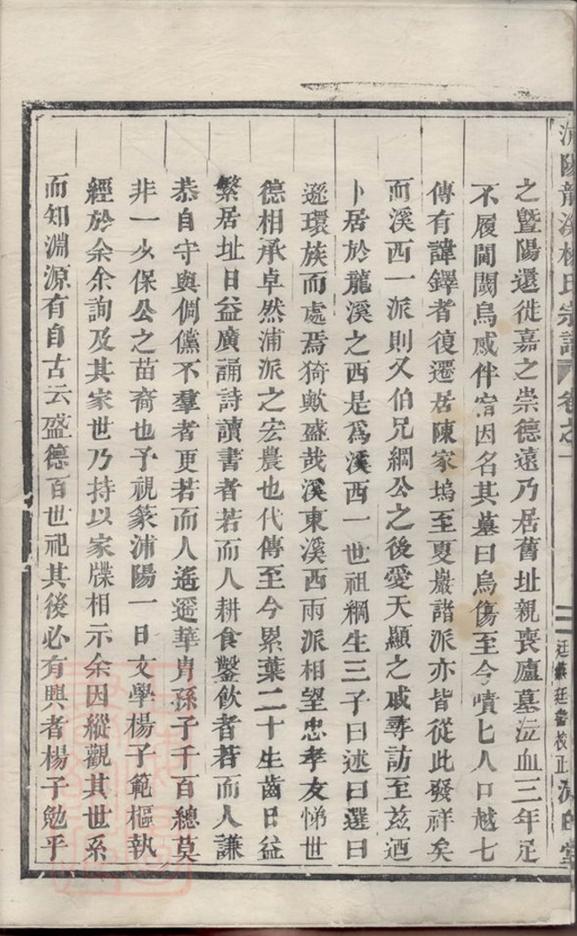 浦陽龍溪楊氏宗譜 卷之一
之暨陽還徙嘉之崇德遠乃居舊址親喪廬墓泣血三年足
不履閫閾烏感伴窗因名其墓曰烏傷至今嘖七人口越七
傳有諱鐸者復遷居陳家塢至夏巖諸派亦皆從此發祥矣
而溪西一派則又伯兄綱公之後愛天顯之戚尋訪至茲迺
卜居於龍溪之西是爲溪西一世祖綱生三子曰述曰選曰
遜環族而處焉猗歟盛哉溪東溪西兩派相望忠孝友悌世
德相承卓然浦派之宏農也代傳至今累葉二十生齒日益
繁居址日益廣誦詩讀書者若而人耕食鑿飲者若而人謙
恭自守與倜儻不羣者更若而人遙遙華胄孫子千百總莫
非一少保公之苗裔也予視篆浦陽一日文學楊子範樞執
經於余余詢及其家世乃持以家牒相示余因縱觀其世系
而知淵源有自古云盛德百世祀其後必有興者楊子勉乎